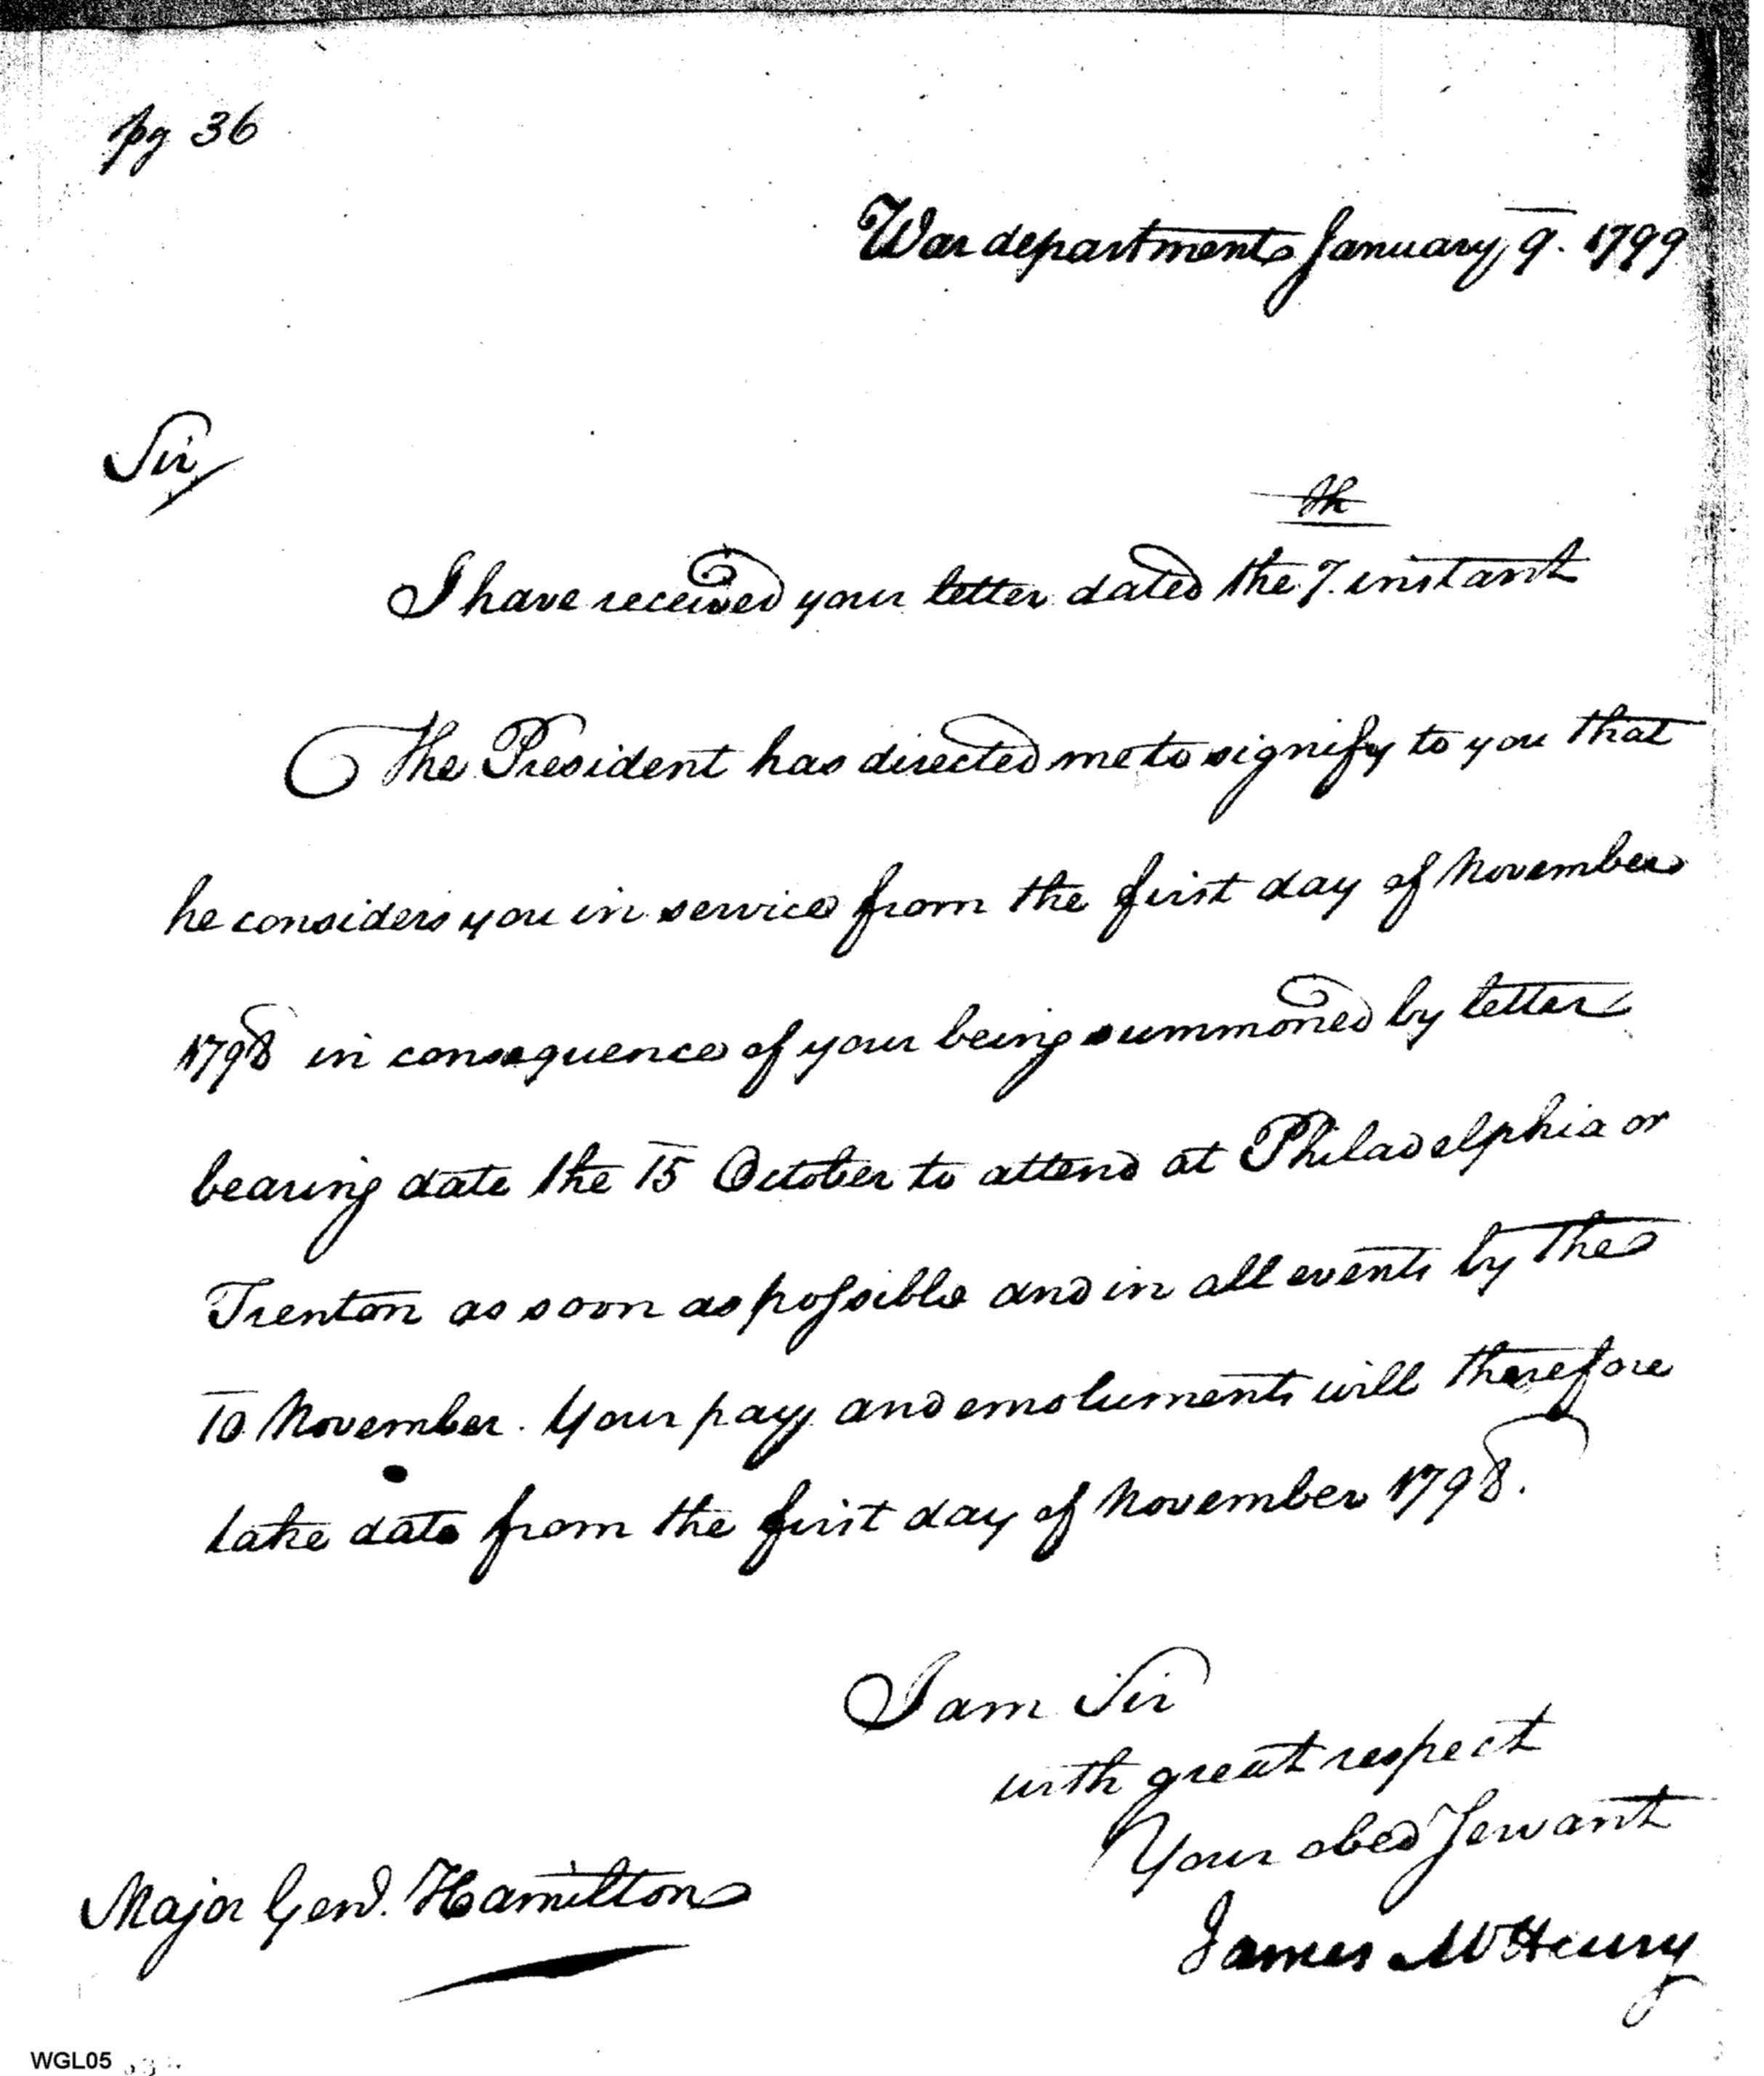 pg 36
War department January 9. 1799
Sir
th
I have received your letter dated the 7. instant
The President has directed me to signify to you that
he considers you in service from the first day of November
1798 in consequence of your being summoned by letter
bearing date the 15 October to attend at Philadelphia or
Trenton as soon as possible and in all events by the
10 November. Your pay and emoluments will therefore
take date from the first day of November 1798.
I am Sir
with great respect
Your obed Servant
Major Genl. Hamilton
James McHenry
WGL05